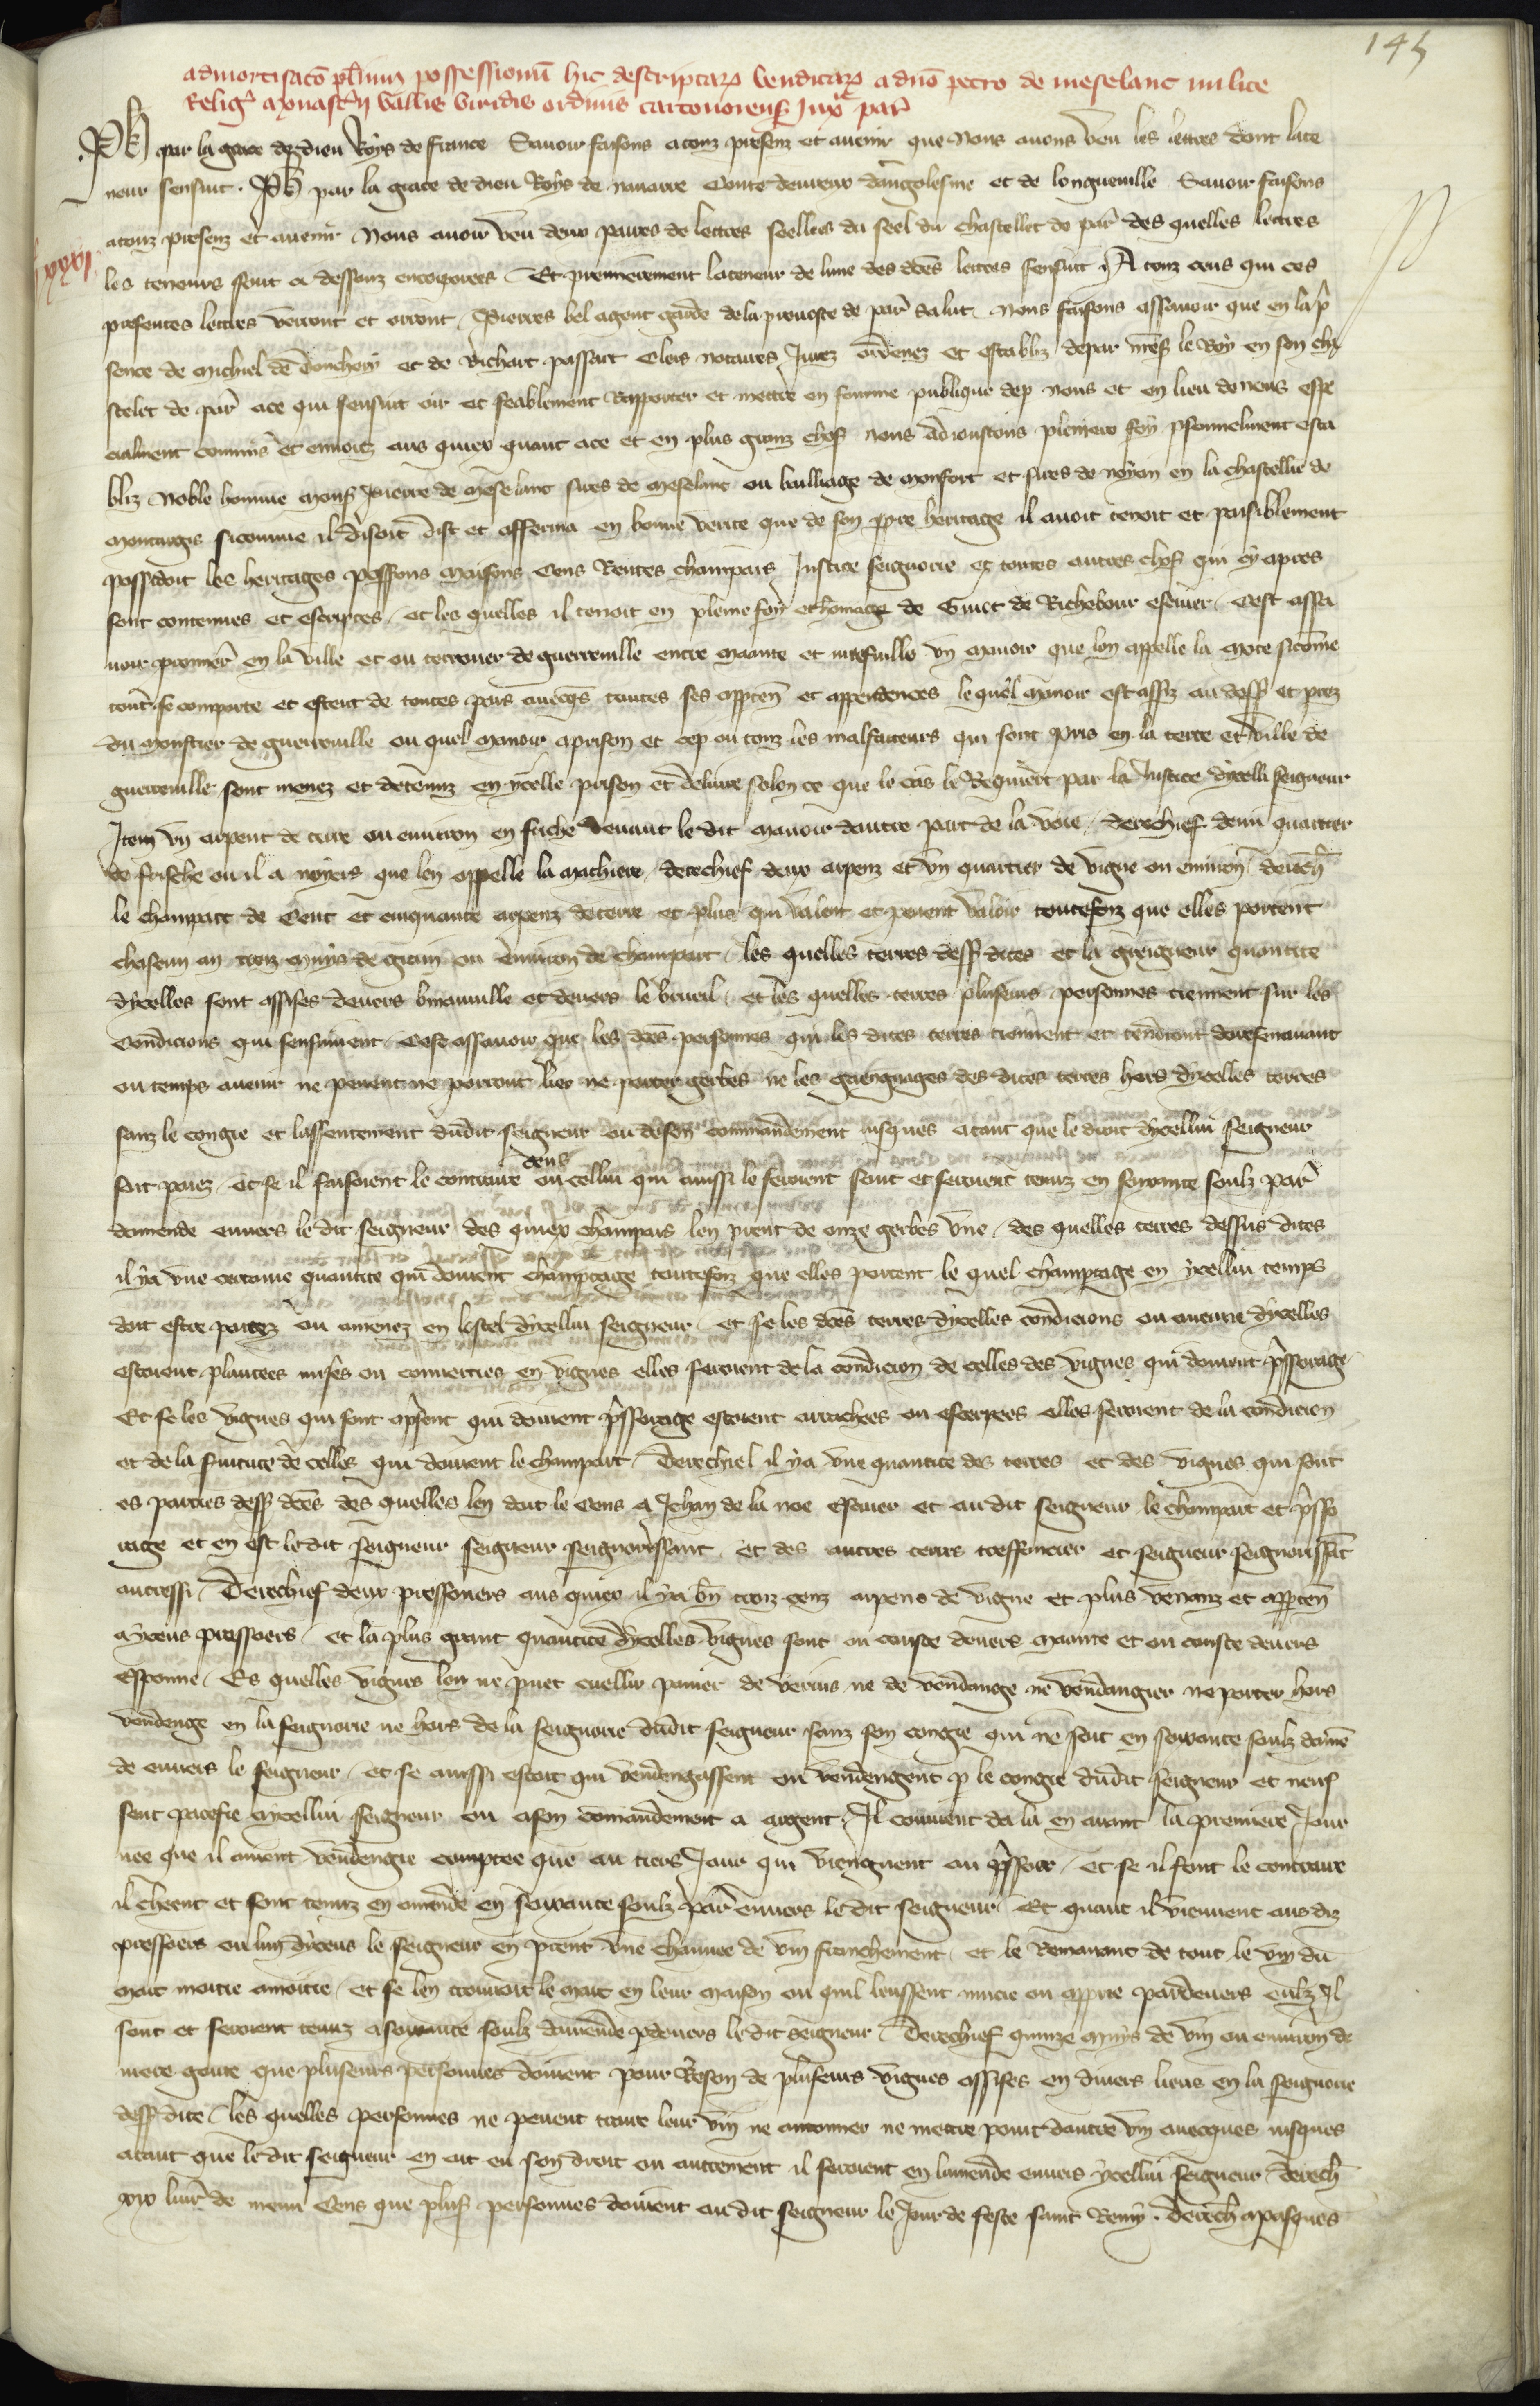 145
admortisatō plurium possessionū hic descriptarꝫ venditarꝫ a dnō petro de meselanc milite
Religꝰ monastͥij vallis viridis ordinis cartouorensis Juxᵃ parꝰ
Ph par la grace de dieu Roys de france Savoir faisons a touz presenz et avenir que Nous avons veu les lettres dont la te
neur sensuit. Ph par la grace de dieu Roys de navarre Conte devreux dangolesme et de longueville Savoir faisons
a touz presenz et avenir Nous avoir veu deux paires de lettres seellees du seel du chastellet de parꝰ des quelles lettres
les teneurs sont ci dessouz encorporees Et premierement la teneur de lune des dc̄es lettres sensuit A touz ceus qui ces
lxxxi
presentes lettres verront et orront Pierres bel agent garde de la prevoste de parꝰ salut Nous faisons assavoir que en la p̄
sence de michiel de donchery et de Richart passart Clers notaires Jurez ordenez et establiz depar nr̄es le Roy en son cha
stelet de parꝰ a ce qui sensuit oir et feablement Rapporter et mettre en fourme publique dep nous et en lieu de nous espe
cialment commis et envoiez aus quiex quant a ce et en plus granz chos nous adioustons pleniere foy personnelment esta
bliz Noble homme mons Pierre de meselanc sires de meselanc ou bailliage de monfort et sires de noyen en la chastellie de
montargis si comme il disoit dist et afferma en bonne verite que de son ppre heritage il avoit tenoit et paisiblement
possedoit les heritages possessions maisons Cens Rentes champars Justice seignorie et toutes autres chos qui cy apres
sont contenues et escriptes et les quelles il tenoit en pleine foy et homage de Guiot de Richebour escuier Cest assa
voir premierͬ en la ville et ou terrouer de guerreville entre maante et un manoir que lon appelle la mote si come
tout se comporte et estent de toutes pars avecqs toutes ses apptenͬ et appendences le quel manoir est assiz au dess et prez
du monstier de guerreville ou quel manoir a prison et cep ou touz les malfaiteurs qui sont pris en la terre et ville de
guerreville sont menez et detenuz en ycelle prison et delivre selon ce que le cas le Requiert par la Justice dycelli seigneur
Item un arpent de terre ou environ en friche devant le dit manoir dautre part de la voie derechief demi quartier
de frische ou il a noyers que len appelle la mathiere derechief deux arpenz et un quartier de vigne ou environ derech
le champart de Cent et cinquante arpenz de terre et plus qui valent et pevent valoir toutefoiz que elles portent
chascun an troiz muys de grain ou environ de champart les quelles terres dess dites et la greigneur quantite
dycelles sont assises devers et devers le brueil et les quelles terres pluseurs personnes tiennent sur les
Condicions qui sensuivent Cest assavoir que les dc̄es personnes qui les dites terres tiennent et tendront doresenavant
ou temps avenir ne pevent ne porront lier ne porter gerbes ne les gaengnages des dites terres hors dycelles terres
sanz le congie et lassentement dudit seigneur ou de son commandement iusques a tant que le droit dycellui seigneur
ceus
soit paiez et se il faisoient le contraire ou cellui qui aussi le feroient sont et seroient tenuz en seixante soulz parͬ
damende envers le dit seigneur des quiex champars len prent de onze gerbes une des quelles terres dessus dites
il ya une certaine quantite qui doivent champtage toutefoiz que elles portent le quel champtage en ycellui temps
doit estre portez ou amenez en lostel dycellui seigneur et se les dc̄es terres dycelles condicions ou aucune dycelles
estoient plantees mises ou converties en vignes elles seroient de la condicion de celles des vignes qui doivent p̄ssorage
Et se les vignes qui sont apsent qui doivent p̄ssorage estoient arrachees ou escerpees elles seroient de la condicion
et de la fuiture de celles qui doivent le champart Derechief il ya une quantite des terres et des vignes qui sont
es parties dess dc̄es des quelles len doit le Cens a Jehan de la noe escuier et au dit seigneur le champart et p̄sso
rage et en est le dit seigneur seigneur seignorissant et des autres terres treffoncier et seigneur seignourissāt
autressi Derechief deux pressouers aus quiex il ya bn̄ troiz cenz arpens de vigne et plus venanz et apptenͬ
a yceus pressoers et la plus grant quantite dycelles vignes sont ou couste devers maante et ou couste devers
Esponne Es quelles vignes lon ne puet cuellir panier de verius ne de vendange ne vendangier ne porter hors
vendenge en la seignorie ne hors de la seignorie dudit seigneur sanz son congie qui ne soit en seixante soulz damē
de envers le seigneur et se aussi estoit qui vendengassent ou vendengent p le congie dudit seigneur et neus
sent pacefie a ycellui seigneur ou a son comandement a argent Il convient da la en avant la premiere Jour
nee que il auront vendengie comptee que au tiers Jour qui viengnent au p̄ssoer et se il font le contraire
il cheent et sont tenuz en amende en seixante soulz parͬ envers le dit seigneur Et quant il viennent aus diz
pressoers ou lun dyceus le seigneur en prent une chauuee de vin franchement et le Remanant de tout le vin du
mait moitie a moitie et se len trouvoit le mait en leur maison ou quil leussent mucie ou apptie pardevers eulz Il
sont et seroient tenuz a soixante soulz damende p devers le dit seigneur Derechief quinze muys de vin ou environ de
mere goute que pluseurs personnes doivent pour Reson de pluseurs vignes assises en divers lieus en la seignorie
dess dite les quelles personnes ne pevent traire leur vin ne antonner ne mettre point dautre vin avecques iusques
a tant que le dit seigneur en ait eu son droit ou autrement il seroient en lamende envers ycellui seigneur Derech
xxv livrͬ de menu Cens que plus personnes doivent au dit seigneur le Jour de feste saint Remy. Derech a pasques